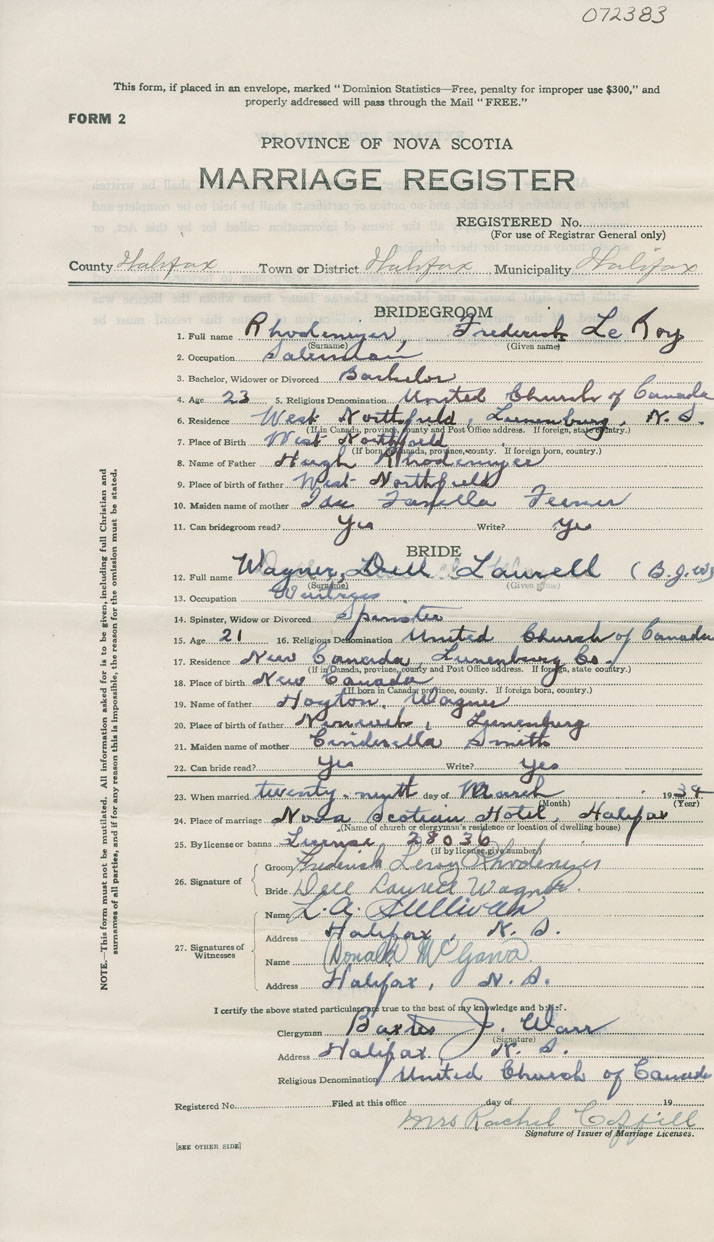 072383
This form, if placed in an envelope, marked "Dominion Statistics—Free, penalty for improper use $300," and
properly addressed will pass through the Mail "FREE."
FORM 2
PROVINCE OF NOVA SCOTIA
MARRIAGE REGISTER
REGISTERED No.
(For use of Registrar General only)
County Halifax Town or District Halifax, Municipality Halifax
BRIDEGROOM
1. Full name Rhodenizer, Frederick Le Roy
(Surname) (Given name)
2. Occupation Salesman
3. Bachelor, Widower or Divorced Bachelor
4. Age 23 5. Religious Denomination United Church of Canada
6. Residence West Northfield, Lunenburg, N. S.
(If in Canada, province, county and Post Office address. If foreign, state country.)
7. Place of Birth West Northfield
(If born in Canada, province, county. If foreign born, country.)
8. Name of Father Hugh Rhodenizer
9. Place of birth of father West Northfield
10. Maiden name of mother Ida
11. Can bridegroom read? Yes Write? Yes
BRIDE
12. Full name Wagner, Dell Laurell (B.J.W)
(Surname) (Given name)
13. Occupation Waitress
14. Spinster, Widow or Divorced Spinster
15. Age 21 16. Religious Denomination United Church of Canada
17. Residence New Canada, Lunenburg Co.
(If in Canada, province, county and Post Office address. If foreign, state country.)
18. Place of birth New Canada
(If born in Canada, province, county. If foreign born, country.)
19. Name of father Hoyton Wagner
20. Place of birth of father Lunenburg
21. Maiden name of mother Cinderella Smith
22. Can bride read? Yes Write? Yes
23. When married twenty-ninth day of March 1934
(Month) (Year)
24. Place of marriage Nova Scotian Hotel, Halifax
(Name of church or clergyman's residence or location of dwelling house)
25. By license or banns License 28036
(If by license, give number)
26. Signature of
Groom Frederick Leroy Rhodenizer
Bride Dell Laurell Wagner.
27. Signatures of Witnesses
Name L. A. Sullivan
Address Halifax, N. S.
Name Donald
Address Halifax, N. S.
I certify the above stated particulars are true to the best of my knowledge and belief.
Clergyman Baxter J. Warr
(Signature)
Address Halifax N. S.
Religious Denomination United Church of Canada
Registered No. Filed at this office day of 19
Mrs Rachel
Signature of Issuer of Marriage Licenses.
[SEE OTHER SIDE]
NOTE.—This form must not be mutilated. All information asked for is to be given, including full Christian and
surnames of all parties, and if for any reason this is impossible, the reason for the omission must be stated.